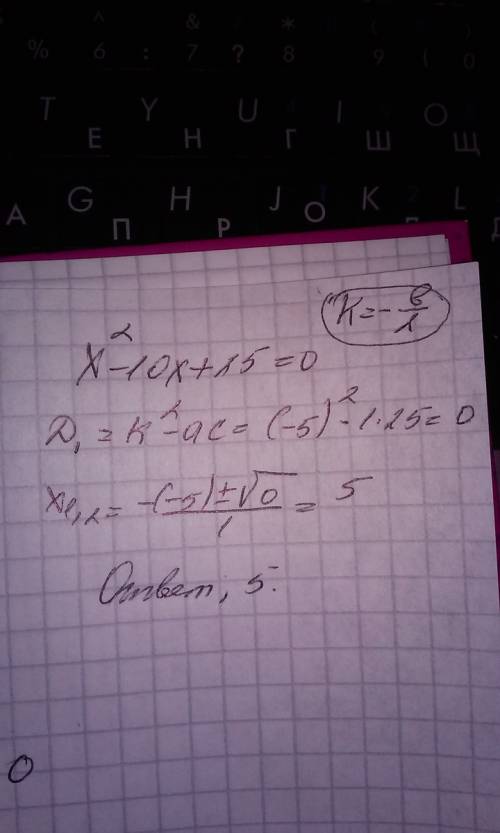 % 6 : 7 ? * 8 9 ( 0
T Y U I O
Е Н Г Ш Щ
G H J K L
А П Р О
K = - в/2
x² - 10x + 25 = 0
D₁ = k² - ac = (-5)² - 1·25 = 0
x₁,₂ = -(-5) ± √0 / 1 = 5
Ответ; 5.
0